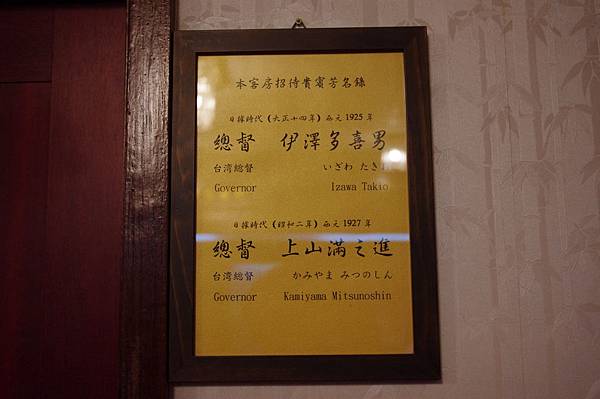 本客房招待貴賓芳名錄
日據時代（大正十四年）西元 1925 年
總督 伊澤多喜男
台湾総督 いざわ たきお
Governor Izawa Takio
日據時代（昭和二年）西元 1927 年
總督 上山滿之進
台湾総督 かみやま みつのしん
Governor Kamiyama Mitsunoshin